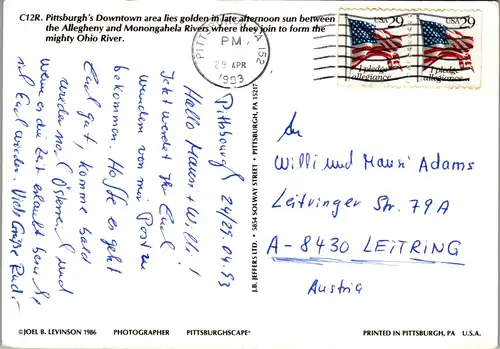 C12R. Pittsburgh's Downtown area lies golden in late afternoon sun between
the Allegheny and Monongahela Rivers where they join to form the
mighty Ohio River.
PITTSBURGH PA 152
PM
29 APR
1993
USA 29
I pledge
allegiance...
USA 29
I pledge
allegiance...
Pittsbourgh 24/29.04.93
Hallo Mausi + Willi!
Jetzt werdet Ihr Euch
wundern von mir Post zu
bekommen. Hoffe es geht
Euch gut, komme bald
wieder nach Österreich und
wenn es die Zeit erlaubt besuche
ich Euch wieder. Viele Grüße Rudi.-
J.B. JEFFERS LTD. • 5854 SOLWAY STREET • PITTSBURGH, PA 15217
An
Willi und Mausi Adams
Leitringer Str. 79A
A-8430 LEITRING
Austria
©JOEL B. LEVINSON 1986 PHOTOGRAPHER PITTSBURGHSCAPE® PRINTED IN PITTSBURGH, PA U.S.A.